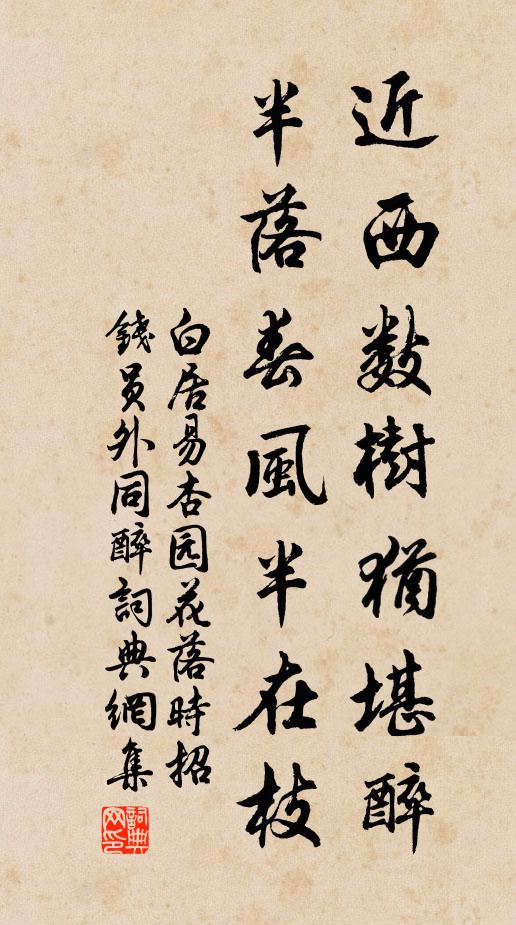 近西數樹猶堪醉
半落春風半在枝
白居易杏园花落時招
錢员外同醉詞典網集
詞典网印